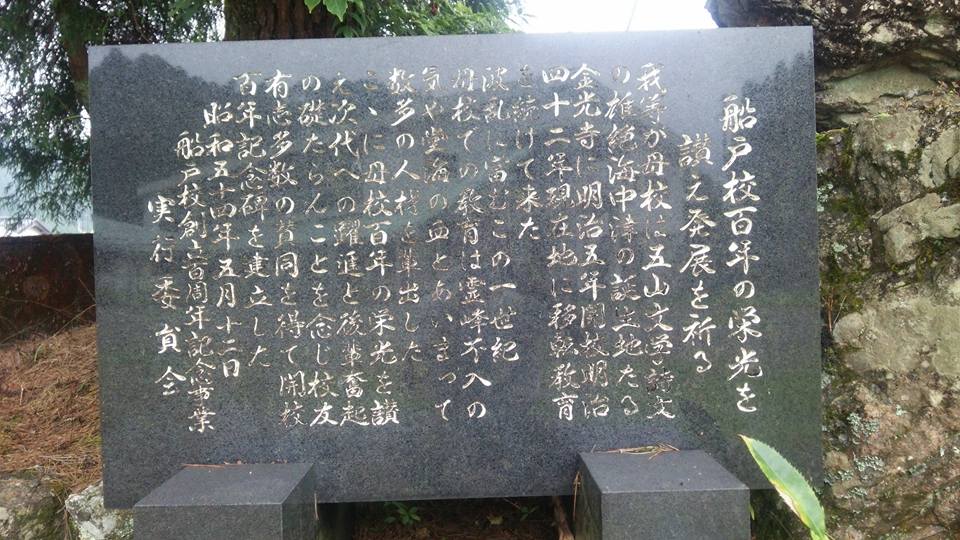 船戸校百年の栄光を
讃え発展を祈る
我等が母校は五山文学詩文
の雄絶海中津の誕生地たる
金光寺に明治五年開校明治
四十二年現在地に移転教育
を続けて来た
波乱に富むこの一世紀
母校での教育は霊峰不入の
気や堂海の血とあいまって
数多の人材を輩出した
こゝに母校百年の栄光を讃
え次代への躍進と後輩奮起
の礎たらんことを念じ校友
有志多数の賛同を得て開校
百年記念碑を建立した
昭和五十四年五月十二日
船戸校創立百周年記念事業
実行委員会